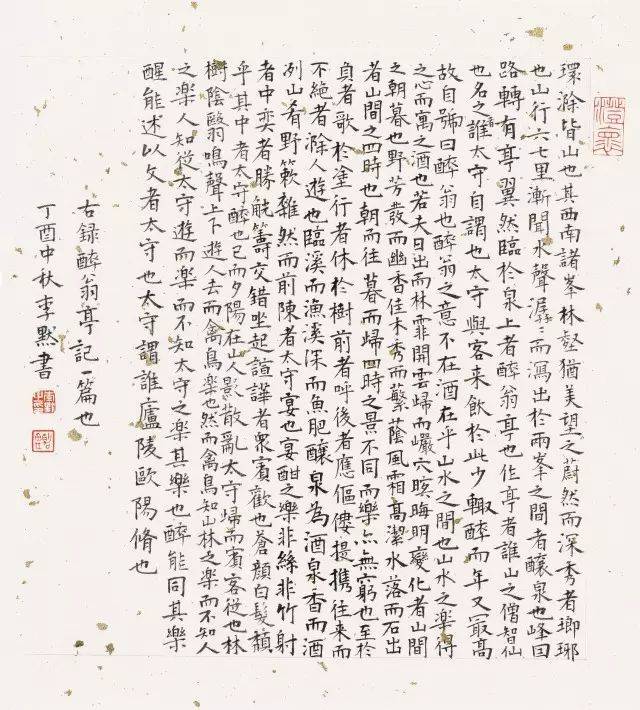 環滁皆山也其西南諸峯林壑猶美望之蔚然而深秀者瑯琊
也山行六七里漸聞水聲潺〻而瀉出於兩峯之間者釀泉也峰回
路轉有亭翼然臨於泉上者醉翁亭也作亭者誰山之僧智仙
也名之者誰太守自謂也太守與客来飲於此少輙醉而年又最高
故自號曰醉翁也醉翁之意不在酒在乎山水之間也山水之樂得
之心而寓之酒也若夫日出而林霏開雲歸而巖穴暝晦明變化者山間
之朝暮也野芳發而幽香佳木秀而蘩蔭風霜高潔水落而石出
者山間之四時也朝而往暮而歸四時之景不同而樂亦無窮也至於
負者歌於塗行者休於樹前者呼後者應傴僂提携往来而
不絶者滁人遊也臨溪而漁溪深而魚肥釀泉為酒泉香而酒
洌山肴野蔌雜然而前陳者太守宴也宴酣之樂非絲非竹射
者中奕者勝觥籌交錯坐起諠譁者衆賓歡也蒼顔白髮頹
乎其中者太守醉也已而夕陽在山人影散亂太守歸而賓客從也林
樹陰翳鳴聲上下遊人去而禽鳥樂也然而禽鳥知山林之樂而不知人
之樂人知從太守遊而樂而不知太守之樂其樂也醉能同其樂
醒能述以文者太守也太守謂誰廬陵歐陽脩也
右録醉翁亭記一篇也
丁酉中秋李黙書